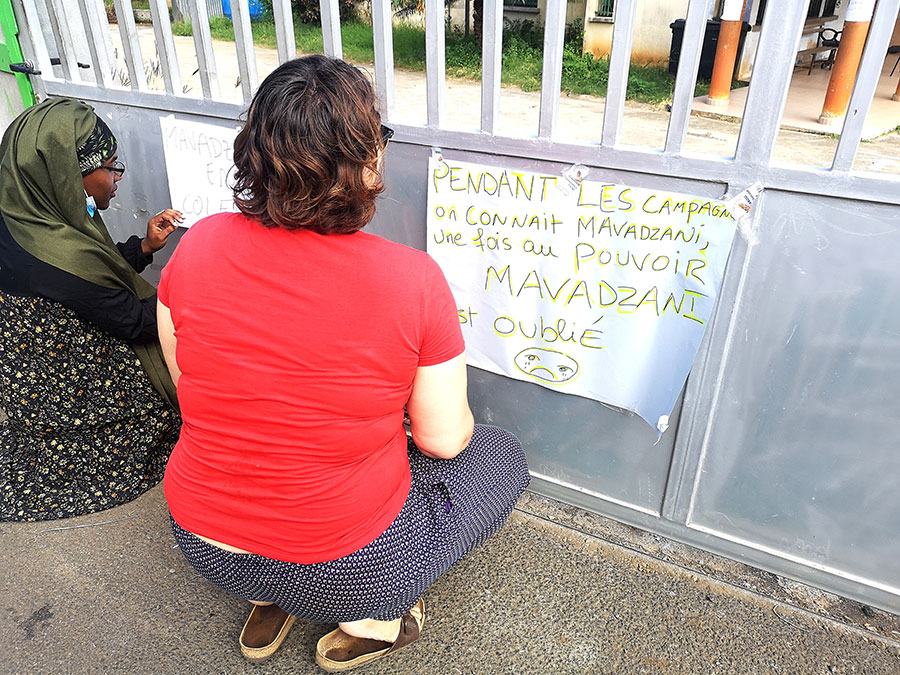 MAVADZANI
EN
COLE
PENDANT LES CAMPAGNE
on CONNAIT MAVADZANI,
une fois au POUVOIR
MAVADZANI
est OUBLIÉ